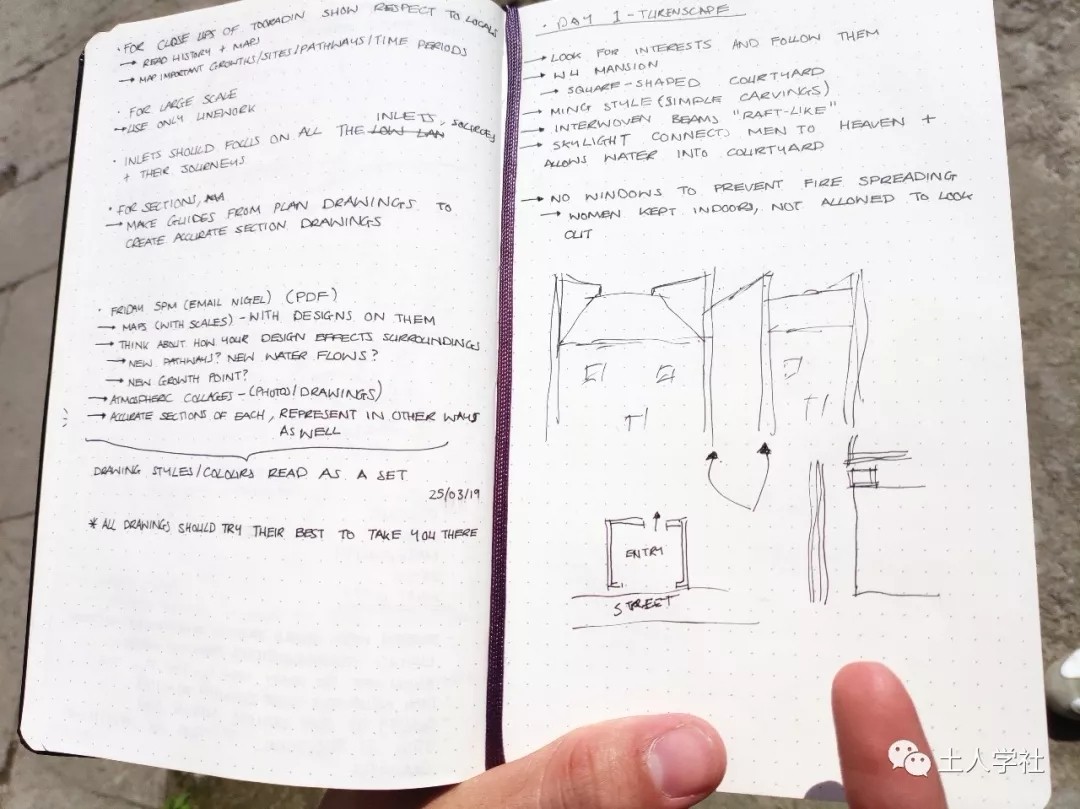 · FOR CLOSE UPS OF TOORADIN SHOW RESPECT TO LOCALS
→ READ HISTORY + MAPS
→ MAP IMPORTANT GROWTHS/SITES/PATHWAYS/TIME PERIODS
· FOR LARGE SCALE
→ USE ONLY LINEWORK
INLETS, SOURCES
· INLETS SHOULD FOCUS ON ALL THE LOW LAN
+ THEIR JOURNEYS
· FOR SECTIONS,
→ MAKE GUIDES FROM PLAN DRAWINGS TO
CREATE ACCURATE SECTION DRAWINGS
· FRIDAY 5PM (EMAIL NIGEL) (PDF)
→ MAPS (WITH SCALES) - WITH DESIGNS ON THEM
→ THINK ABOUT HOW YOUR DESIGN EFFECTS SURROUNDINGS
→ NEW PATHWAYS? NEW WATER FLOWS?
→ NEW GROWTH POINT?
→ ATMOSPHERIC COLLAGES - (PHOTOS/DRAWINGS)
→ ACCURATE SECTIONS OF EACH, REPRESENT IN OTHER WAYS
AS WELL
DRAWING STYLES/COLOURS READ AS A SET
25/03/19
* ALL DRAWINGS SHOULD TRY THEIR BEST TO TAKE YOU THERE
· DAY 1 - TURENSCAPE
→ LOOK FOR INTERESTS AND FOLLOW THEM
→ WH MANSION
→ SQUARE-SHAPED COURTYARD
→ MING STYLE (SIMPLE CARVINGS)
→ INTERWOVEN BEAMS "RAFT-LIKE"
→ SKYLIGHT CONNECTS MEN TO HEAVEN +
ALLOWS WATER INTO COURTYARD
→ NO WINDOWS TO PREVENT FIRE SPREADING
→ WOMEN KEPT INDOORS, NOT ALLOWED TO LOOK
OUT
ENTRY
STREET
土人学社